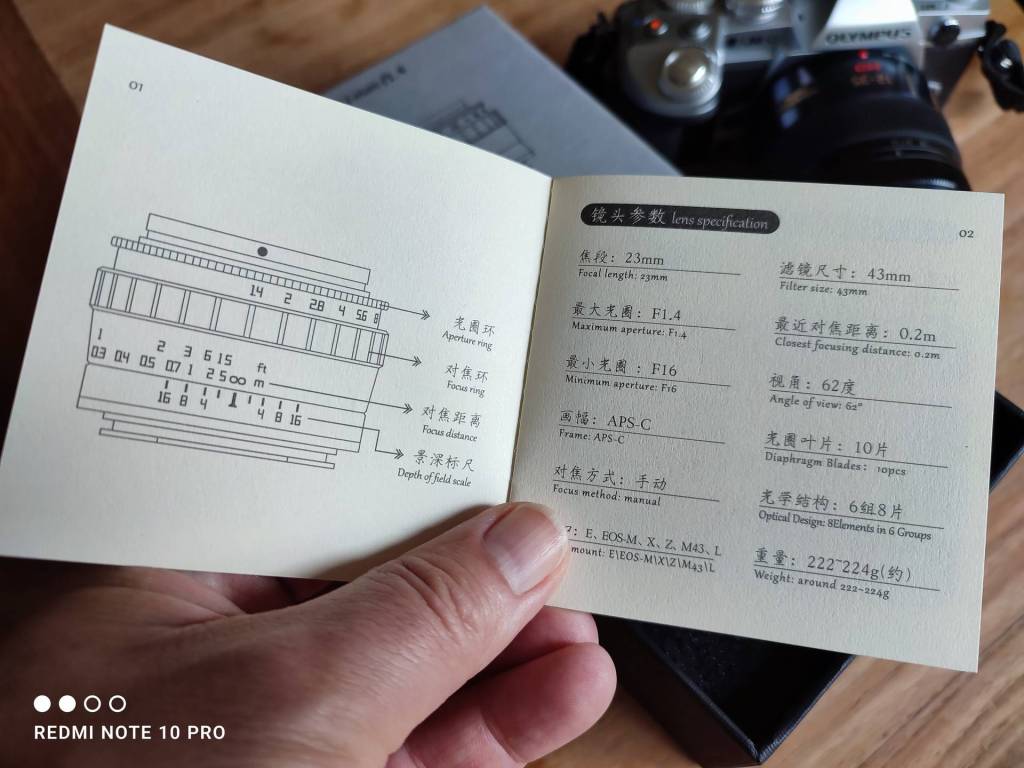 01
1.4 2 2.8 4 5.6 8
光圈环
Aperture ring
对焦环
Focus ring
1 2 3 6 15 ft
0.3 0.4 0.5 0.7 1 2 5 ∞ m
16 8 4 4 8 16
对焦距离
Focus distance
景深标尺
Depth of field scale
镜头参数 lens specification
02
焦段：23mm
Focal length: 23mm
最大光圈：F1.4
Maximum aperture: F1.4
最小光圈：F16
Minimum aperture: F16
画幅：APS-C
Frame: APS-C
对焦方式：手动
Focus method: manual
：E、EOS-M、X、Z、M43、L
mount: E\EOS-M\X\Z\M43\L
滤镜尺寸：43mm
Filter size: 43mm
最近对焦距离：0.2m
Closest focusing distance: 0.2m
视角：62度
Angle of view: 62°
光圈叶片：10片
Diaphragm Blades: 10pcs
光学结构：6组8片
Optical Design: 8Elements in 6 Groups
重量：222~224g(约)
Weight: around 222~224g
OLYMPUS
REDMI NOTE 10 PRO